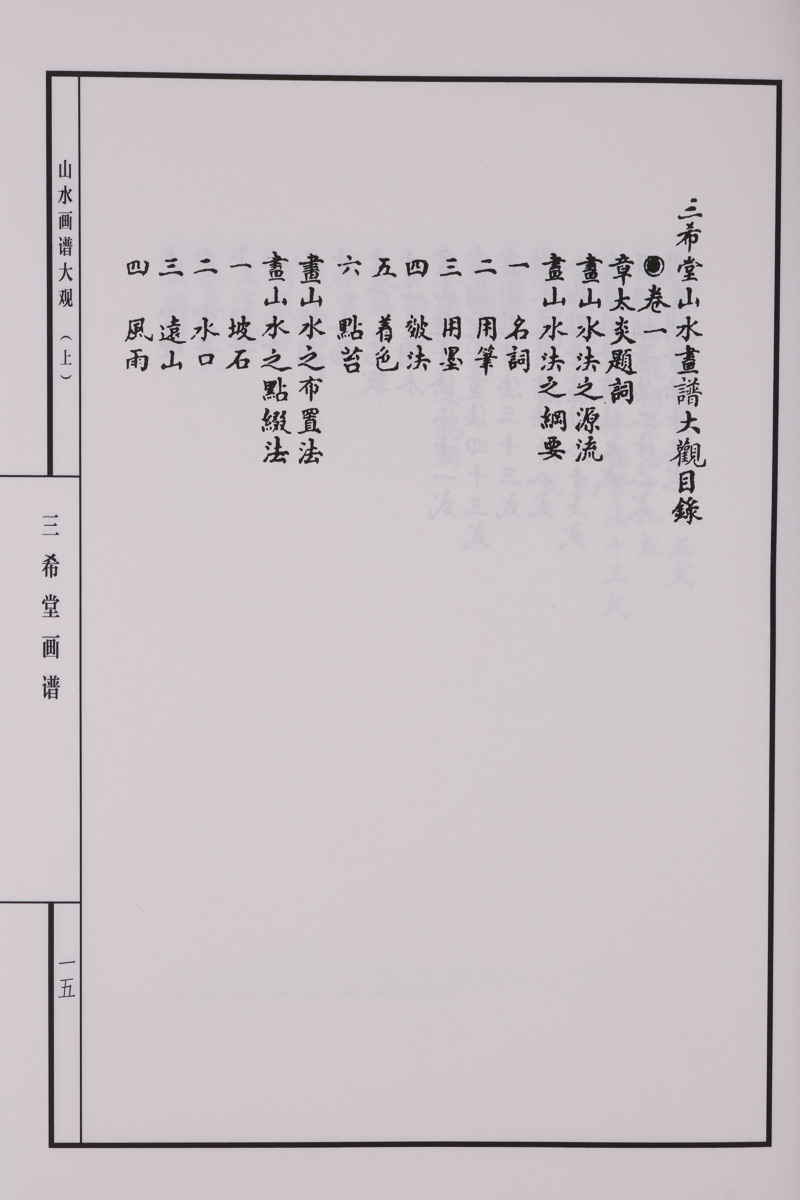 三希堂山水畫譜大觀目錄
◉卷一
章太炎題詞
畫山水法之源流
畫山水法之綱要
一 名詞
二 用筆
三 用墨
四 皴法
五 着色
六 點苔
畫山水之布置法
畫山水之點綴法
一 坡石
二 水口
三 遠山
四 風雨
山水画谱大观（上）
三希堂画谱
一五